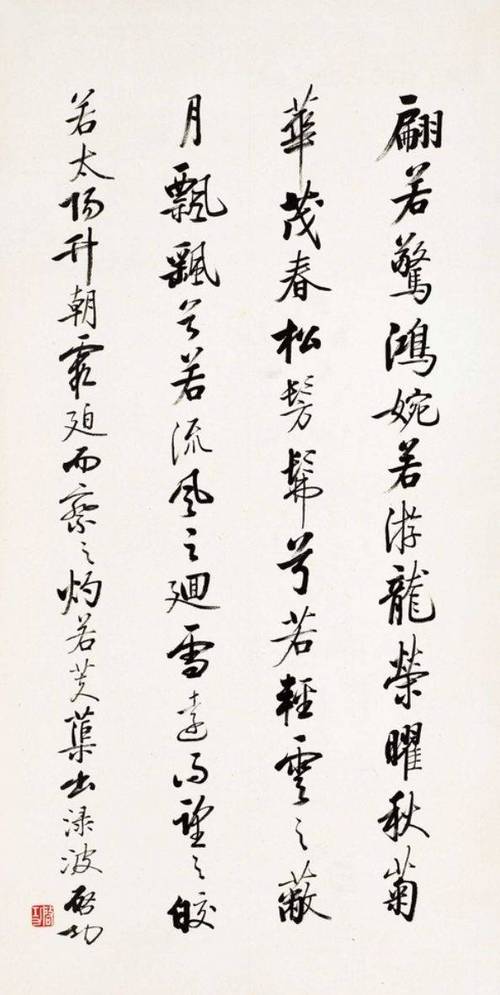 翩若驚鴻婉若游龍榮曜秋菊
華茂春松髣髴兮若輕雲之蔽
月飄颻兮若流風之廻雪遠而望之皎
若太陽升朝霞迫而察之灼若芙蕖出淥波 啟功